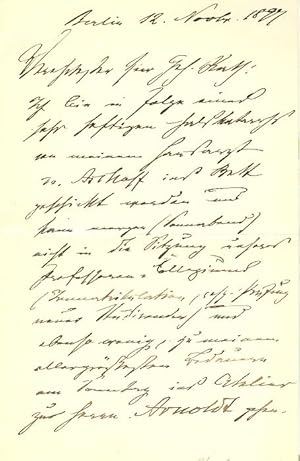 Berlin 12. Novbr. 1897
Verehrter Herr Geh. Rath!
Ich bin in Folge eines
sehr heftigen Halskatarrhs
von meinem Hausarzt
Dr. Aschoff ins Bett
geschickt worden und
kann morgen (Sonnabend)
nicht in die Sitzung unseres
Professoren-Collegiums
(Immatrikulation, resp. Prüfung
neuer Studirender) und
ebenso wenig, zu meinem
allergrößten Bedauern
am Sonntag ins Atelier
zur Herrn Arnoldt gehen.